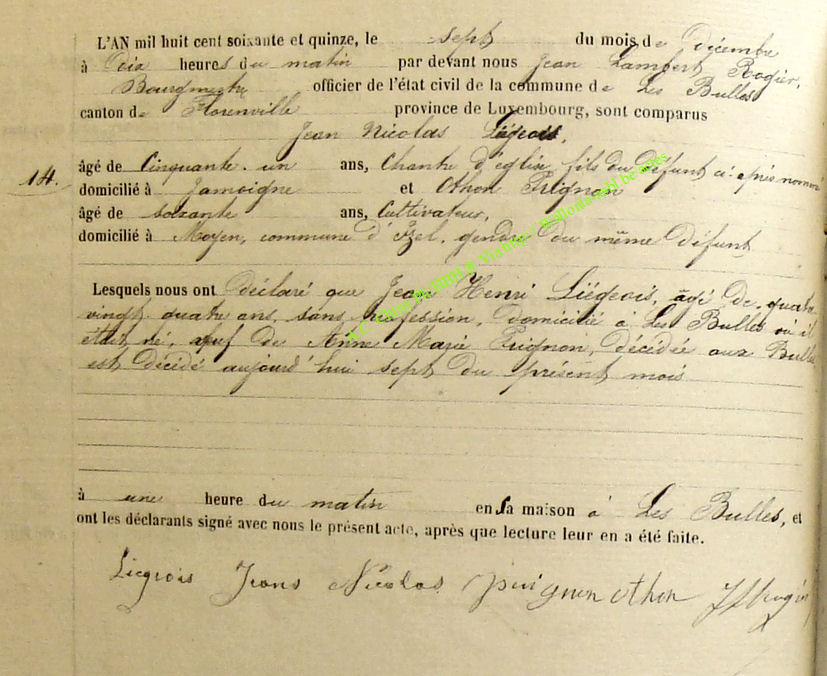 L'AN mil huit cent soixante et quinze, le sept du mois de Décembre
à Dix heures du matin par devant nous Jean Lambert Rogier,
Bourgmestre officier de l'état civil de la commune de Les Bulles
canton de Florenville province de Luxembourg, sont comparus
Jean Nicolas Liégeois,
14. âgé de Cinquante-un ans, Chantre d'église, fils du Défunt ci-après nommé
domicilié à Jamoigne et Othon Puignon
âgé de soixante ans, Cultivateur,
domicilié à Moyen, commune d'Izel, gendre du même défunt
Lesquels nous ont Déclaré que Jean Henri Liégeois, âgé de quatre
vingt quatre ans, sans profession, domicilié à Les Bulles où il
était né, veuf de Anne Marie Puignon, décédée aux Bulles
est décédé aujourd'hui sept du présent mois
à une heure du matin en sa maison à Les Bulles, et
ont les déclarants signé avec nous le présent acte, après que lecture leur en a été faite.
Liegeois Jeans Nicolas Puignon Othon JLRogier